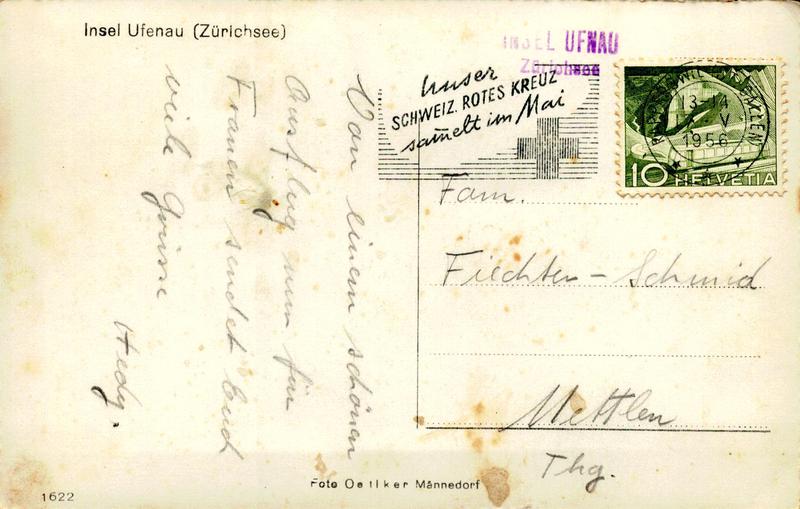 Insel Ufenau (Zürichsee)
INSEL UFNAU
Zürichsee
Unser
SCHWEIZ. ROTES KREUZ
sammelt im Mai
13-14
V
1956
10 HELVETIA
Von einem schönen
Ausflug nur für
Frauen sendet Euch
viele Grüsse
Hedy.
Fam.
Fiechter-Schmid
Mettlen
Thg.
Foto Oetiker Männedorf
1622